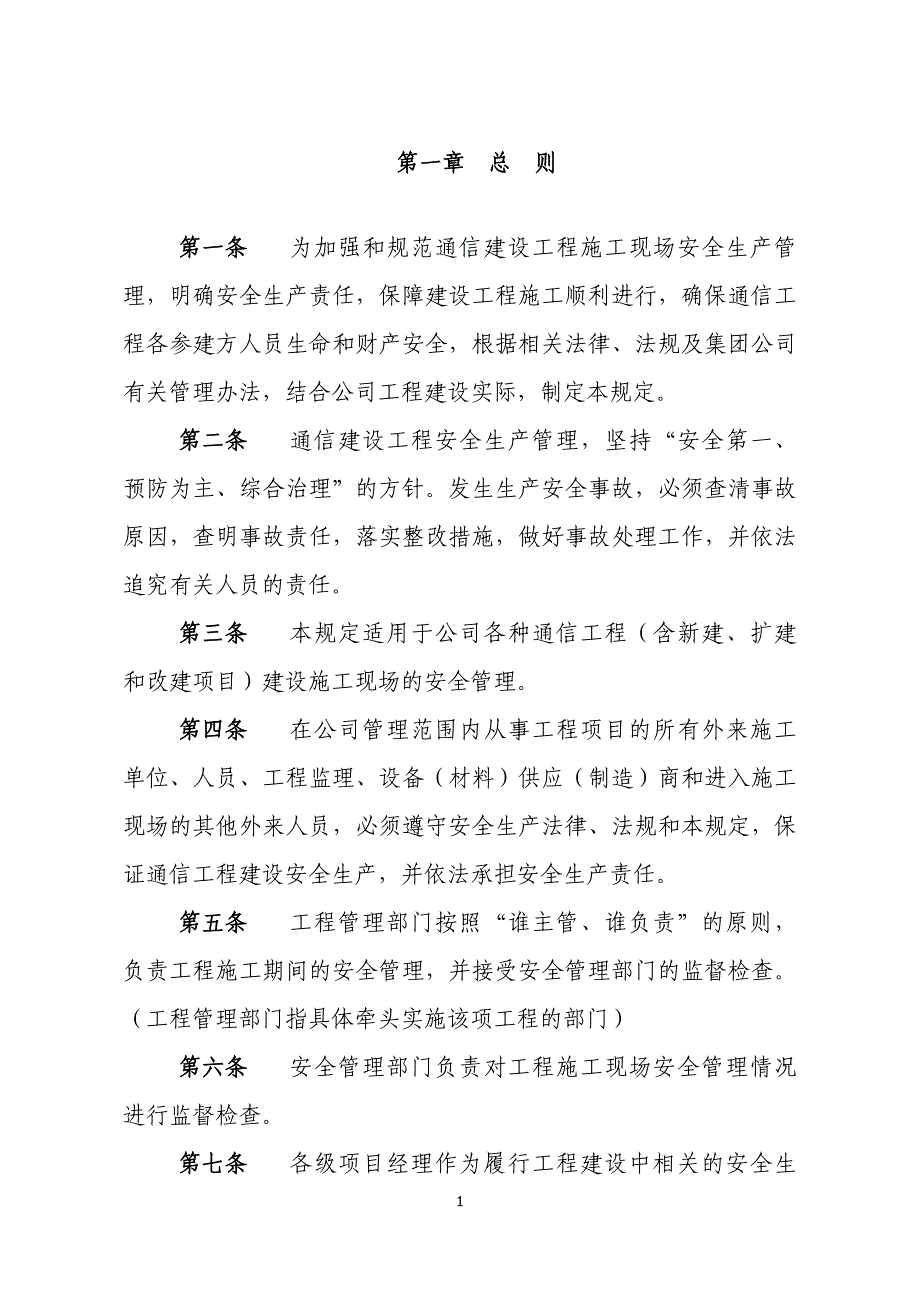 第一章　总　则
第一条　为加强和规范通信建设工程施工现场安全生产管
理，明确安全生产责任，保障建设工程施工顺利进行，确保通信工
程各参建方人员生命和财产安全，根据相关法律、法规及集团公司
有关管理办法，结合公司工程建设实际，制定本规定。
第二条　通信建设工程安全生产管理，坚持“安全第一、
预防为主、综合治理”的方针。发生生产安全事故，必须查清事故
原因，查明事故责任，落实整改措施，做好事故处理工作，并依法
追究有关人员的责任。
第三条　本规定适用于公司各种通信工程（含新建、扩建
和改建项目）建设施工现场的安全管理。
第四条　在公司管理范围内从事工程项目的所有外来施工
单位、人员、工程监理、设备（材料）供应（制造）商和进入施工
现场的其他外来人员，必须遵守安全生产法律、法规和本规定，保
证通信工程建设安全生产，并依法承担安全生产责任。
第五条　工程管理部门按照“谁主管、谁负责”的原则，
负责工程施工期间的安全管理，并接受安全管理部门的监督检查。
（工程管理部门指具体牵头实施该项工程的部门）
第六条　安全管理部门负责对工程施工现场安全管理情况
进行监督检查。
第七条　各级项目经理作为履行工程建设中相关的安全生
1